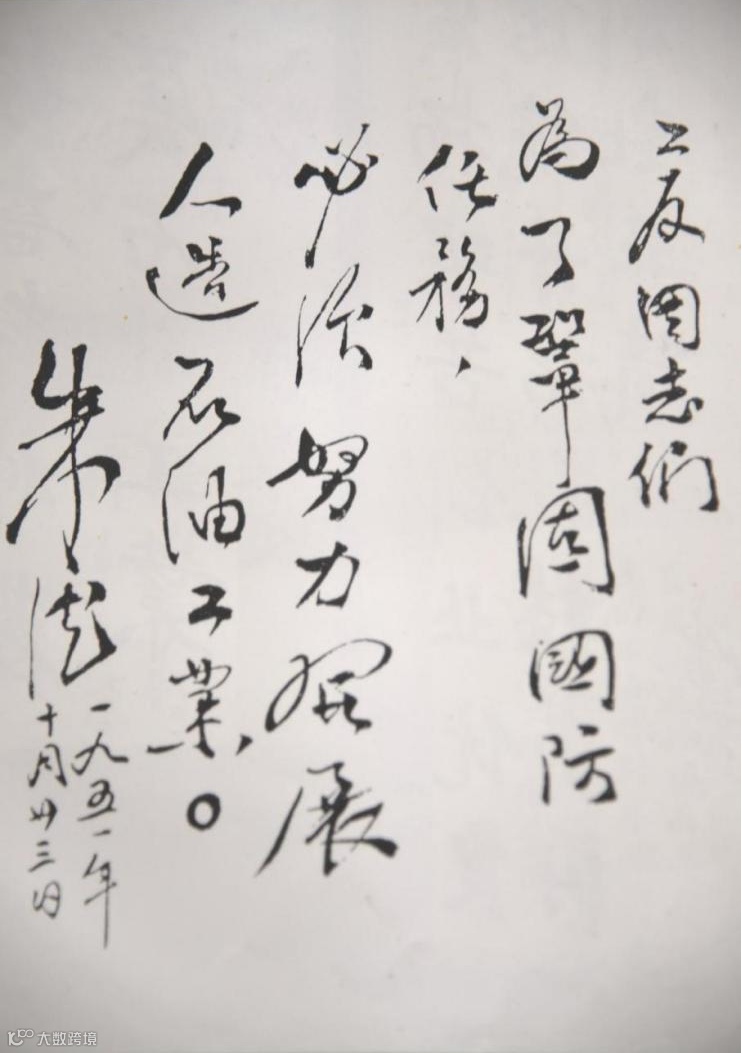 工友同志們
為了鞏固國防
任務、
必須努力發展
人造石油工業。
朱德
一九五一年
十月廿三日
大数跨境